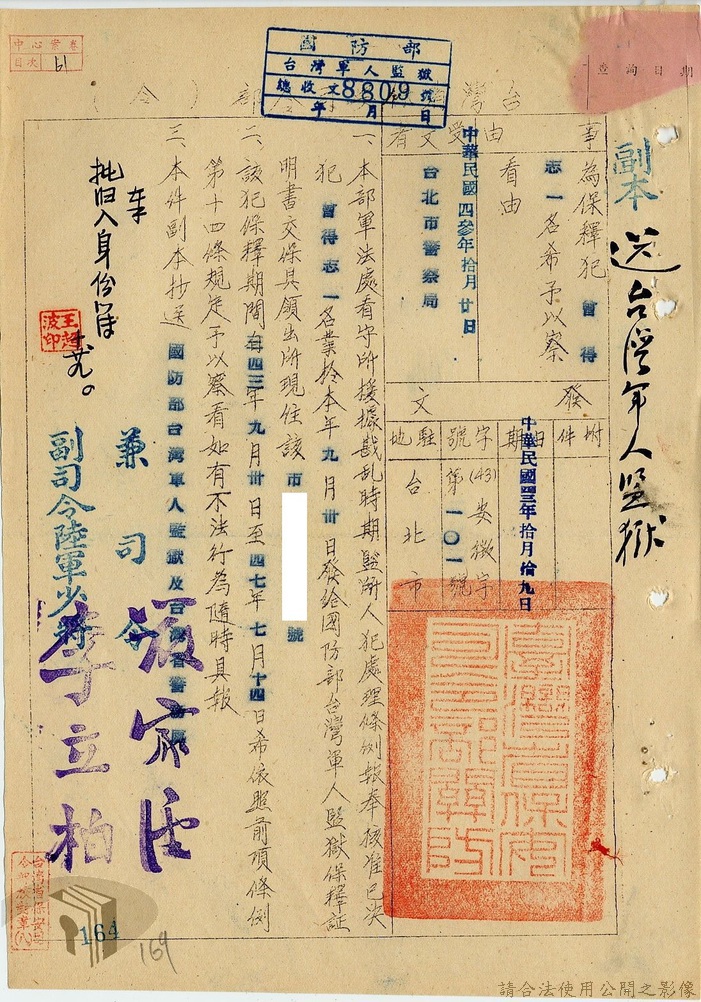 中心案卷
目次 61
國防部
台灣軍人監獄
總收文8809號
年月日
查詢日期
台灣
部
(令)
副本
送台灣軍人監獄
事由
為保釋犯曾得
志一名希予以察
看由
受文者
中華民國四參年拾月廿日
台北市警察局
發文
附件
日期
中華民國四三年拾月拾九日
字號
(43)安徽字
第一〇一號
駐地
台北市
一、本部軍法處看守所援據戡亂時期監所人犯處理條例報奉核准已決
犯曾得志一名業於本年九月卅日發給國防部台灣軍人監獄保釋証
明書交保具領出所現住該市
號
二、該犯保釋期間自四三年九月卅日至四七年七月十四日希依照前項條例
第十四條規定予以察看如有不法行為隨時具報
三、本件副本抄送國防部台灣軍人監獄及台灣省警務處
兼司令
副司令陸軍少將
李立柏
歸入身份簿
王超波印
台灣省保安司令部關防
164
169
請合法使用公開之影像